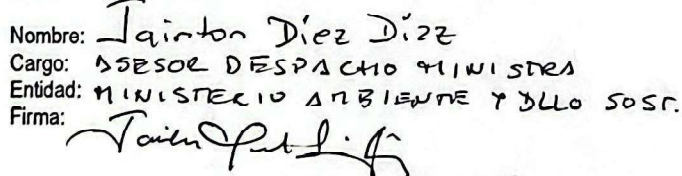 Nombre: Jainton Diez Díaz
Cargo: ASESOR DESPACHO MINISTRA
Entidad: MINISTERIO AMBIENTE Y DLLO SOST.
Firma: